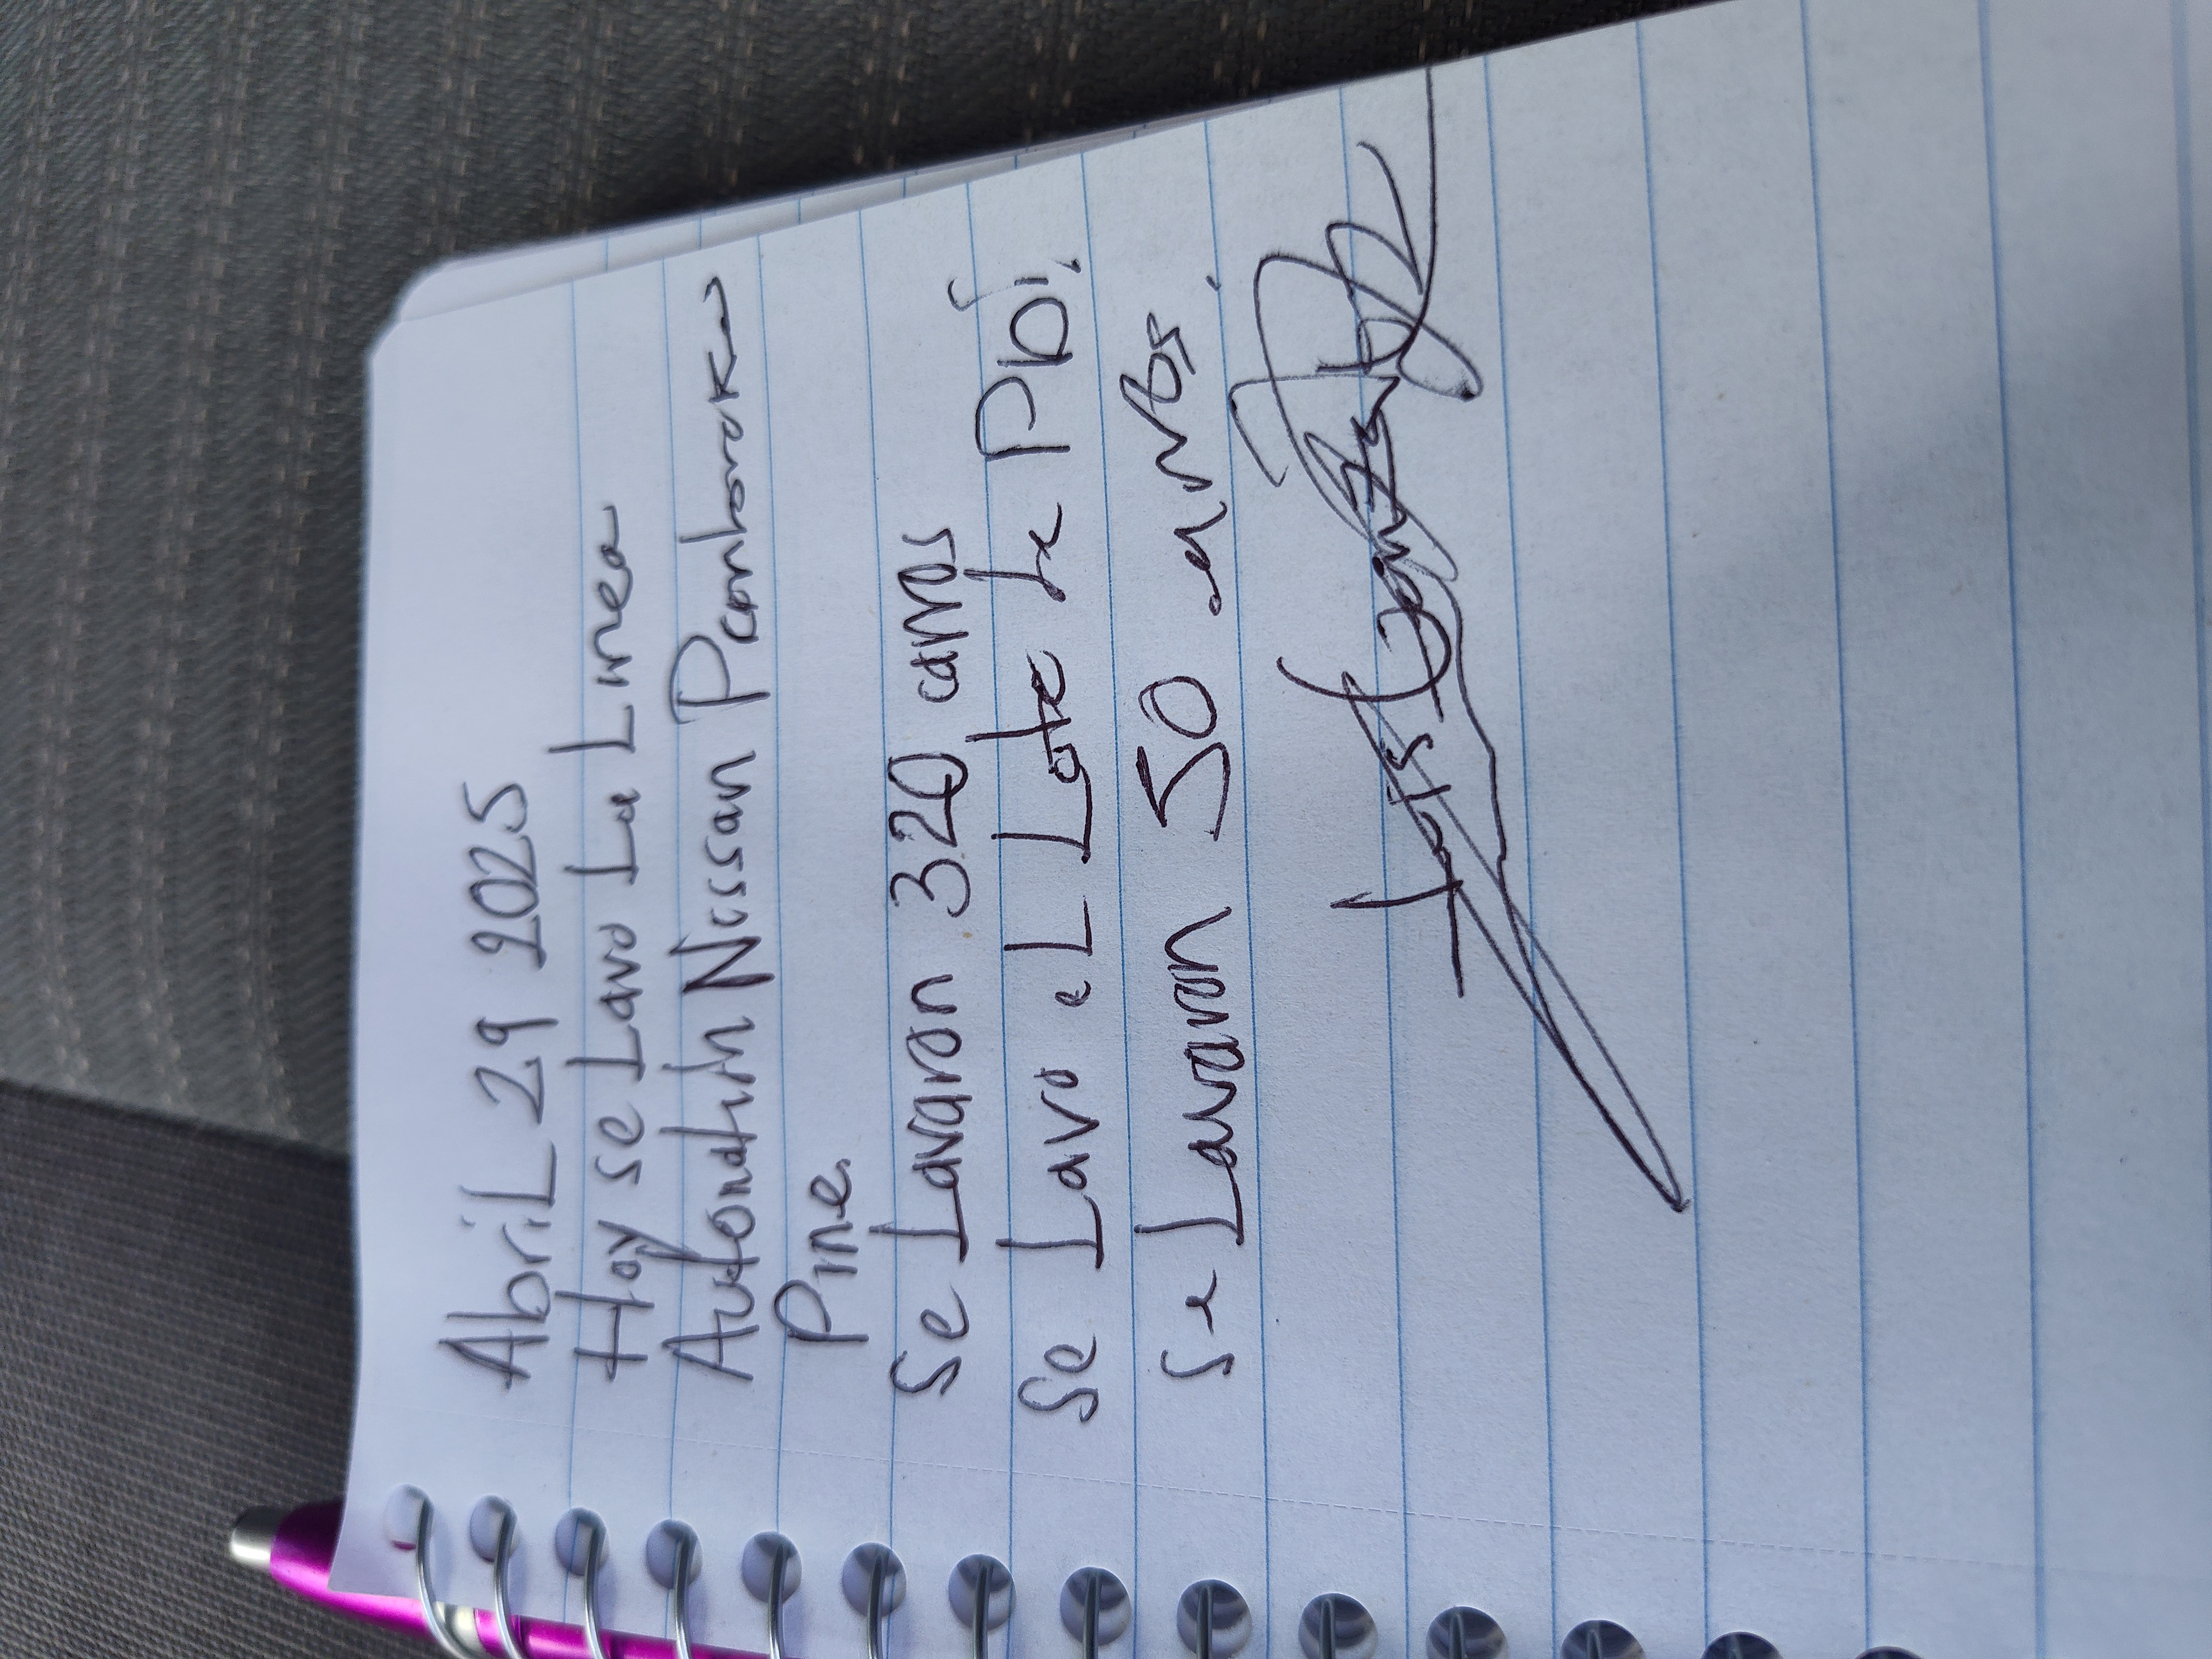 AbriL 29 2025
Hoy se Lavo La Linea
Autonation Nissan Pembroke
Pine.
Se Lavaron 320 carros
Se Lavo eL Lote de PDi.
Se Lavaron 50 carros.
Luis Gonzalez